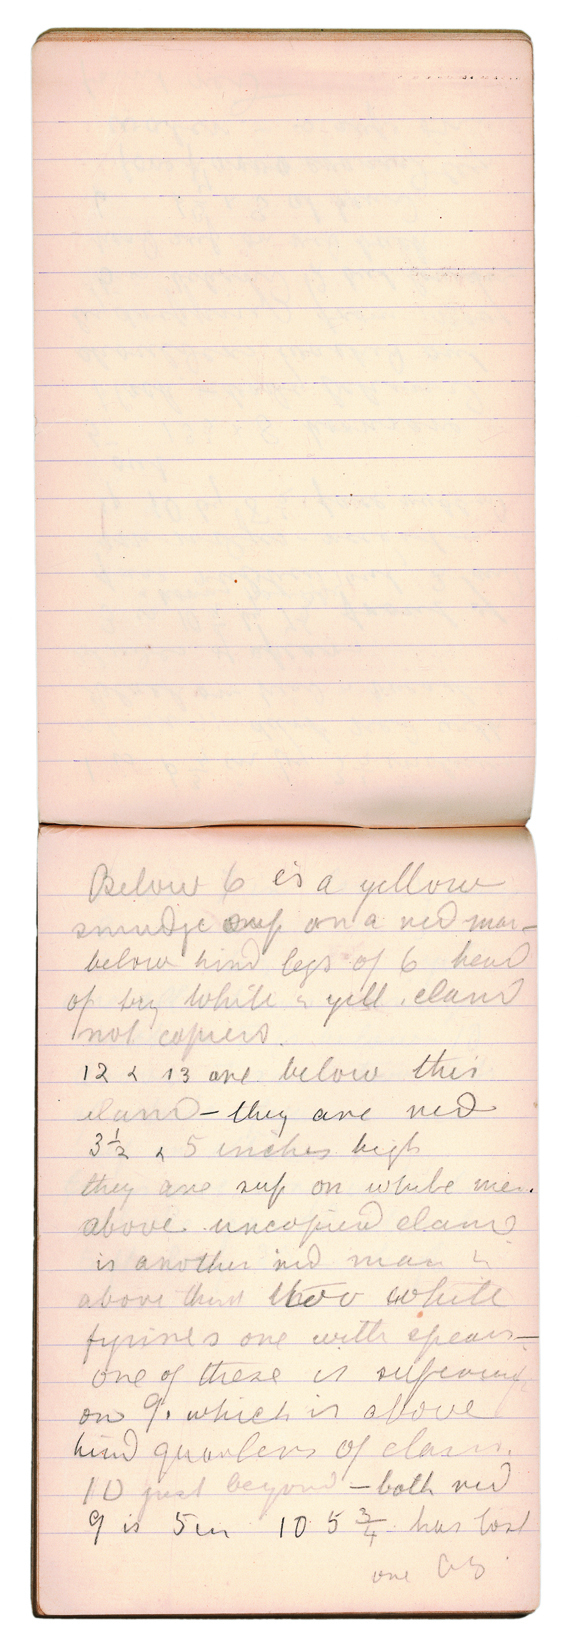 Below 6 is a yellow
smudge sup on a red man
below hind legs of 6 head
of big white & yell. eland
not copied.
12 & 13 are below this
eland - they are red
3½ & 5 inches high
they are sup on white men.
above uncopied eland
is another red man
above them two white
figures one with spears -
one of these is superimp
on 9. which is above
hind quarters of eland.
10 just beyond - both red
9 is 5in 10 5¾ has lost
one leg